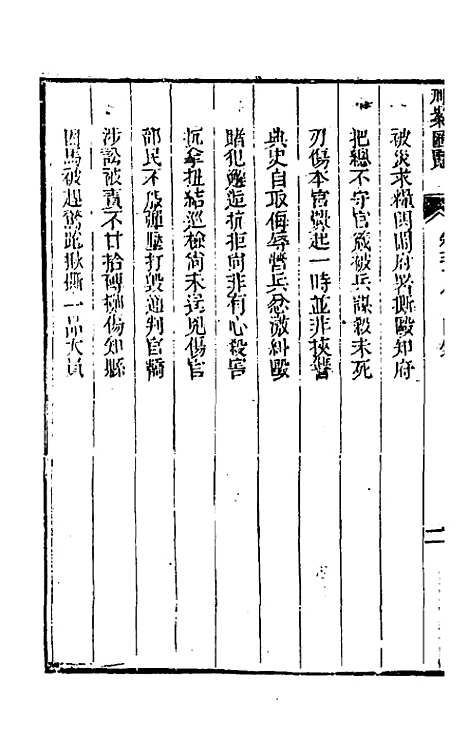 刑案匯覽
被災求糧因鬧府署撕毆知府
把總不守官箴被兵謀殺未死
刃傷本官釁起一時並非挾讐
典史自取侮辱營兵忿激糾毆
賭犯邂逅抗拒尚非有心殺害
抗拿扭結巡檢尚未毆傷官
部民不服彈壓打毀通判官轎
涉訟被責不甘拾磚擲傷知縣
因馬被趕驚跪揪撕一品大員